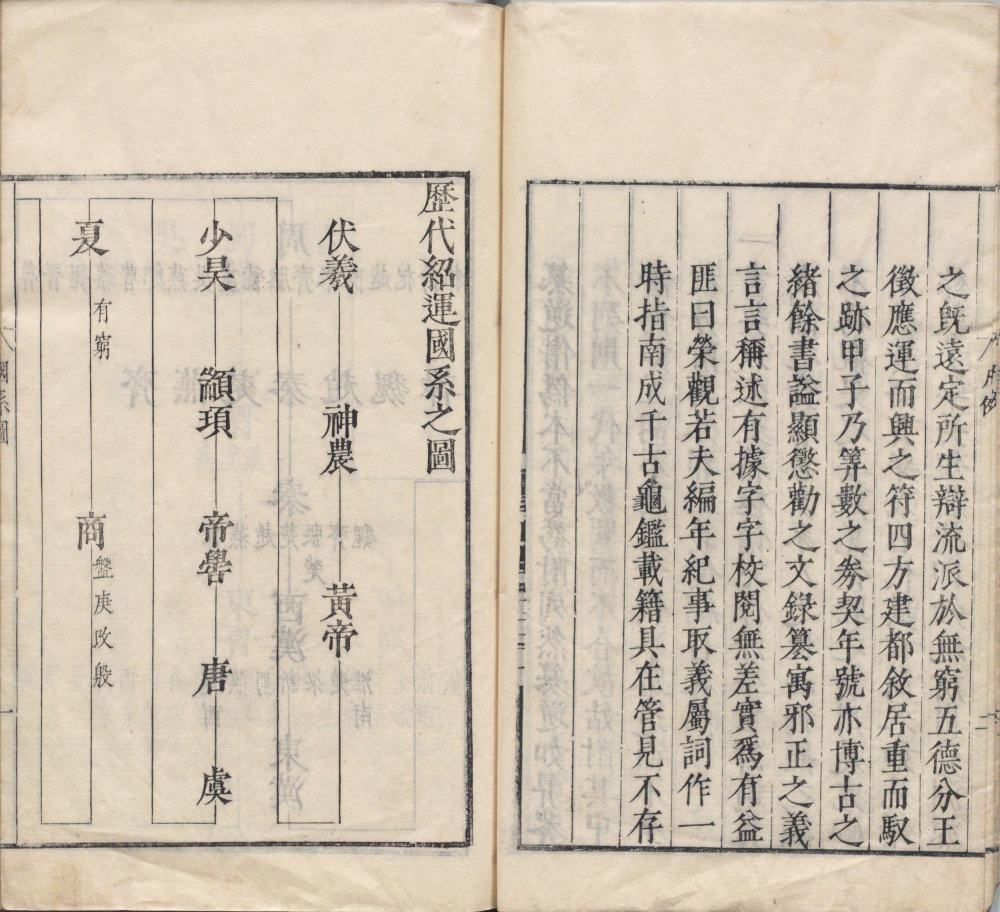 之旣遠定所生辯流派於無窮五德分王
徵應運而興之符四方建都敘居重而馭
之跡甲子乃筭數之券契年號亦博古之
緒餘書謚顯懲勸之文錄篡寓邪正之義
言言稱述有據字字校閱無差實爲有益
匪曰榮觀若夫編年紀事取義屬詞作一
時指南成千古龜鑑載籍具在管見不存
二
歷代紹運國系之圖
伏羲 神農 黃帝
少昊 顓頊 帝嚳 唐 虞
夏 有窮 商 盤庚改殷
國系圖
一